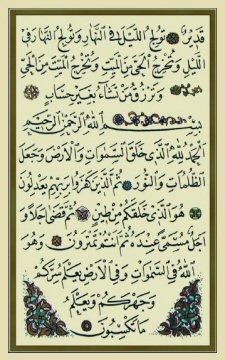 قَدِيرٌ ۞ تُولِجُ اللَّيْلَ فِي النَّهَارِ وَتُولِجُ النَّهَارَ فِي
اللَّيْلِ وَتُخْرِجُ الْحَيَّ مِنَ الْمَيِّتِ وَتُخْرِجُ الْمَيِّتَ مِنَ الْحَيِّ
وَتَرْزُقُ مَنْ تَشَاءُ بِغَيْرِ حِسَابٍ
بِسْمِ اللهِ الرَّحْمٰنِ الرَّحِيمِ
اَلْحَمْدُ لِلّٰهِ الَّذِي خَلَقَ السَّمٰوَاتِ وَالْاَرْضَ وَجَعَلَ
الظُّلُمَاتِ وَالنُّورَ ثُمَّ الَّذِينَ كَفَرُوا بِرَبِّهِمْ يَعْدِلُونَ
هُوَ الَّذِي خَلَقَكُمْ مِنْ طِينٍ ثُمَّ قَضٰى اَجَلًا وَ
اَجَلٌ مُسَمًّى عِنْدَهُ ثُمَّ اَنْتُمْ تَمْتَرُونَ وَهُوَ
اللهُ فِي السَّمٰوَاتِ وَفِي الْاَرْضِ يَعْلَمُ سِرَّكُمْ
وَجَهْرَكُمْ وَيَعْلَمُ
مَا تَكْسِبُونَ